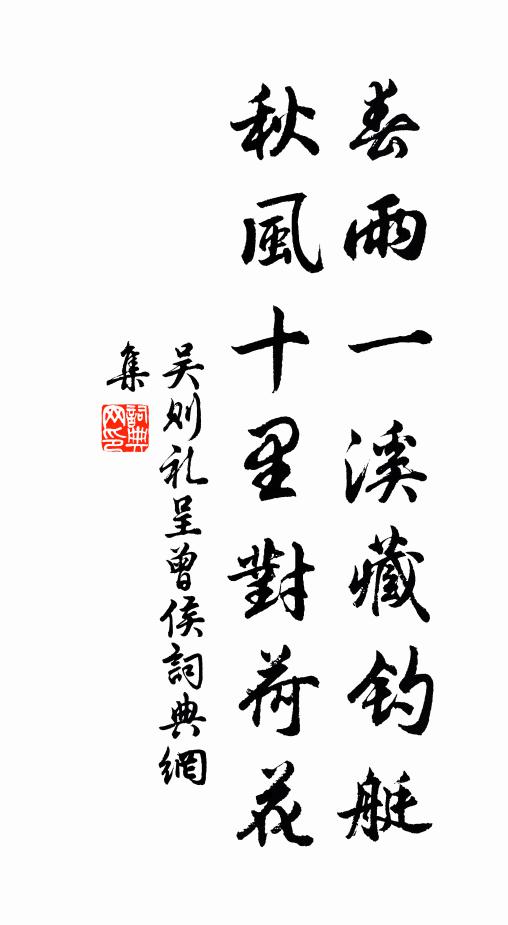 春雨一溪藏釣艇
秋風十里對荷花
吴则礼呈曾侯詞典網
集
詞典網印